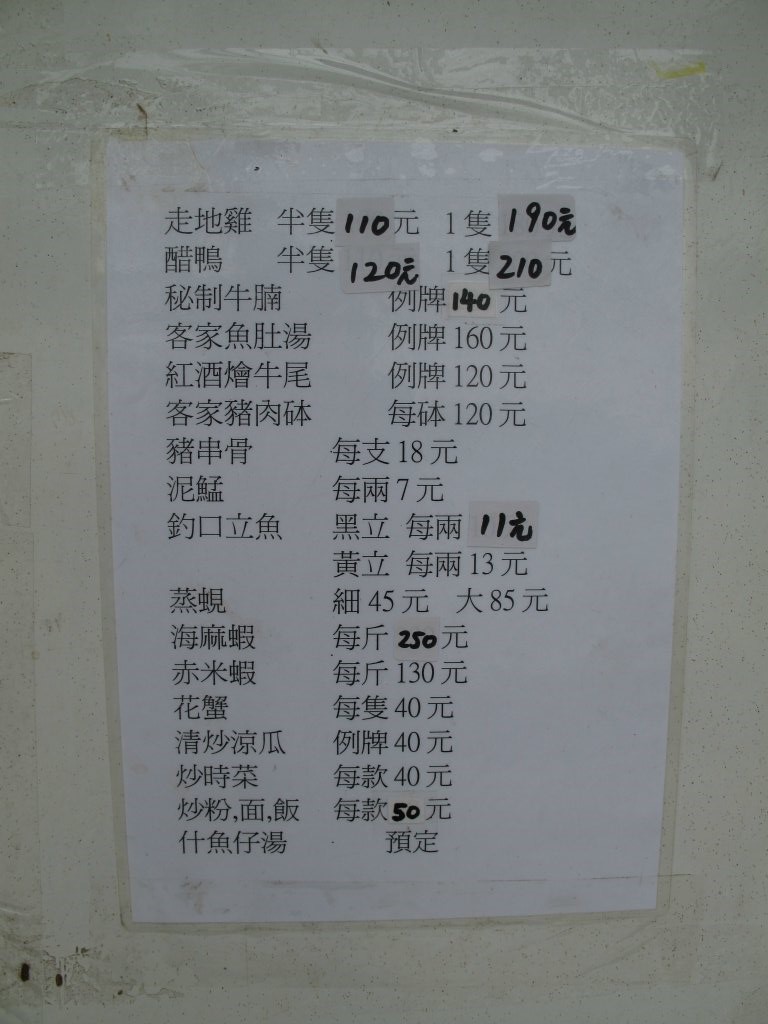 走地雞 半隻 110元 1隻 190元
醋鴨 半隻 120元 1隻 210元
秘制牛腩 例牌 140 元
客家魚肚湯 例牌 160 元
紅酒燴牛尾 例牌 120 元
客家豬肉砵 每砵 120 元
豬串骨 每支 18 元
泥鯭 每兩 7 元
釣口立魚 黑立 每兩 11元
黃立 每兩 13 元
蒸蜆 細 45 元 大 85 元
海麻蝦 每斤 250 元
赤米蝦 每斤 130 元
花蟹 每隻 40 元
清炒涼瓜 例牌 40 元
炒時菜 每款 40 元
炒粉,面,飯 每款 50 元
什魚仔湯 預定